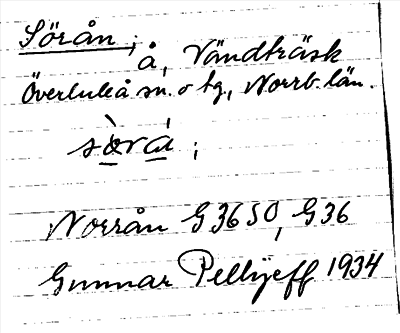 Sörån;
å, Vändträsk
Överluleå sn. o tg., Norrb. län.
Norrån G3650, G36
Gunnar Pellijeff 1934